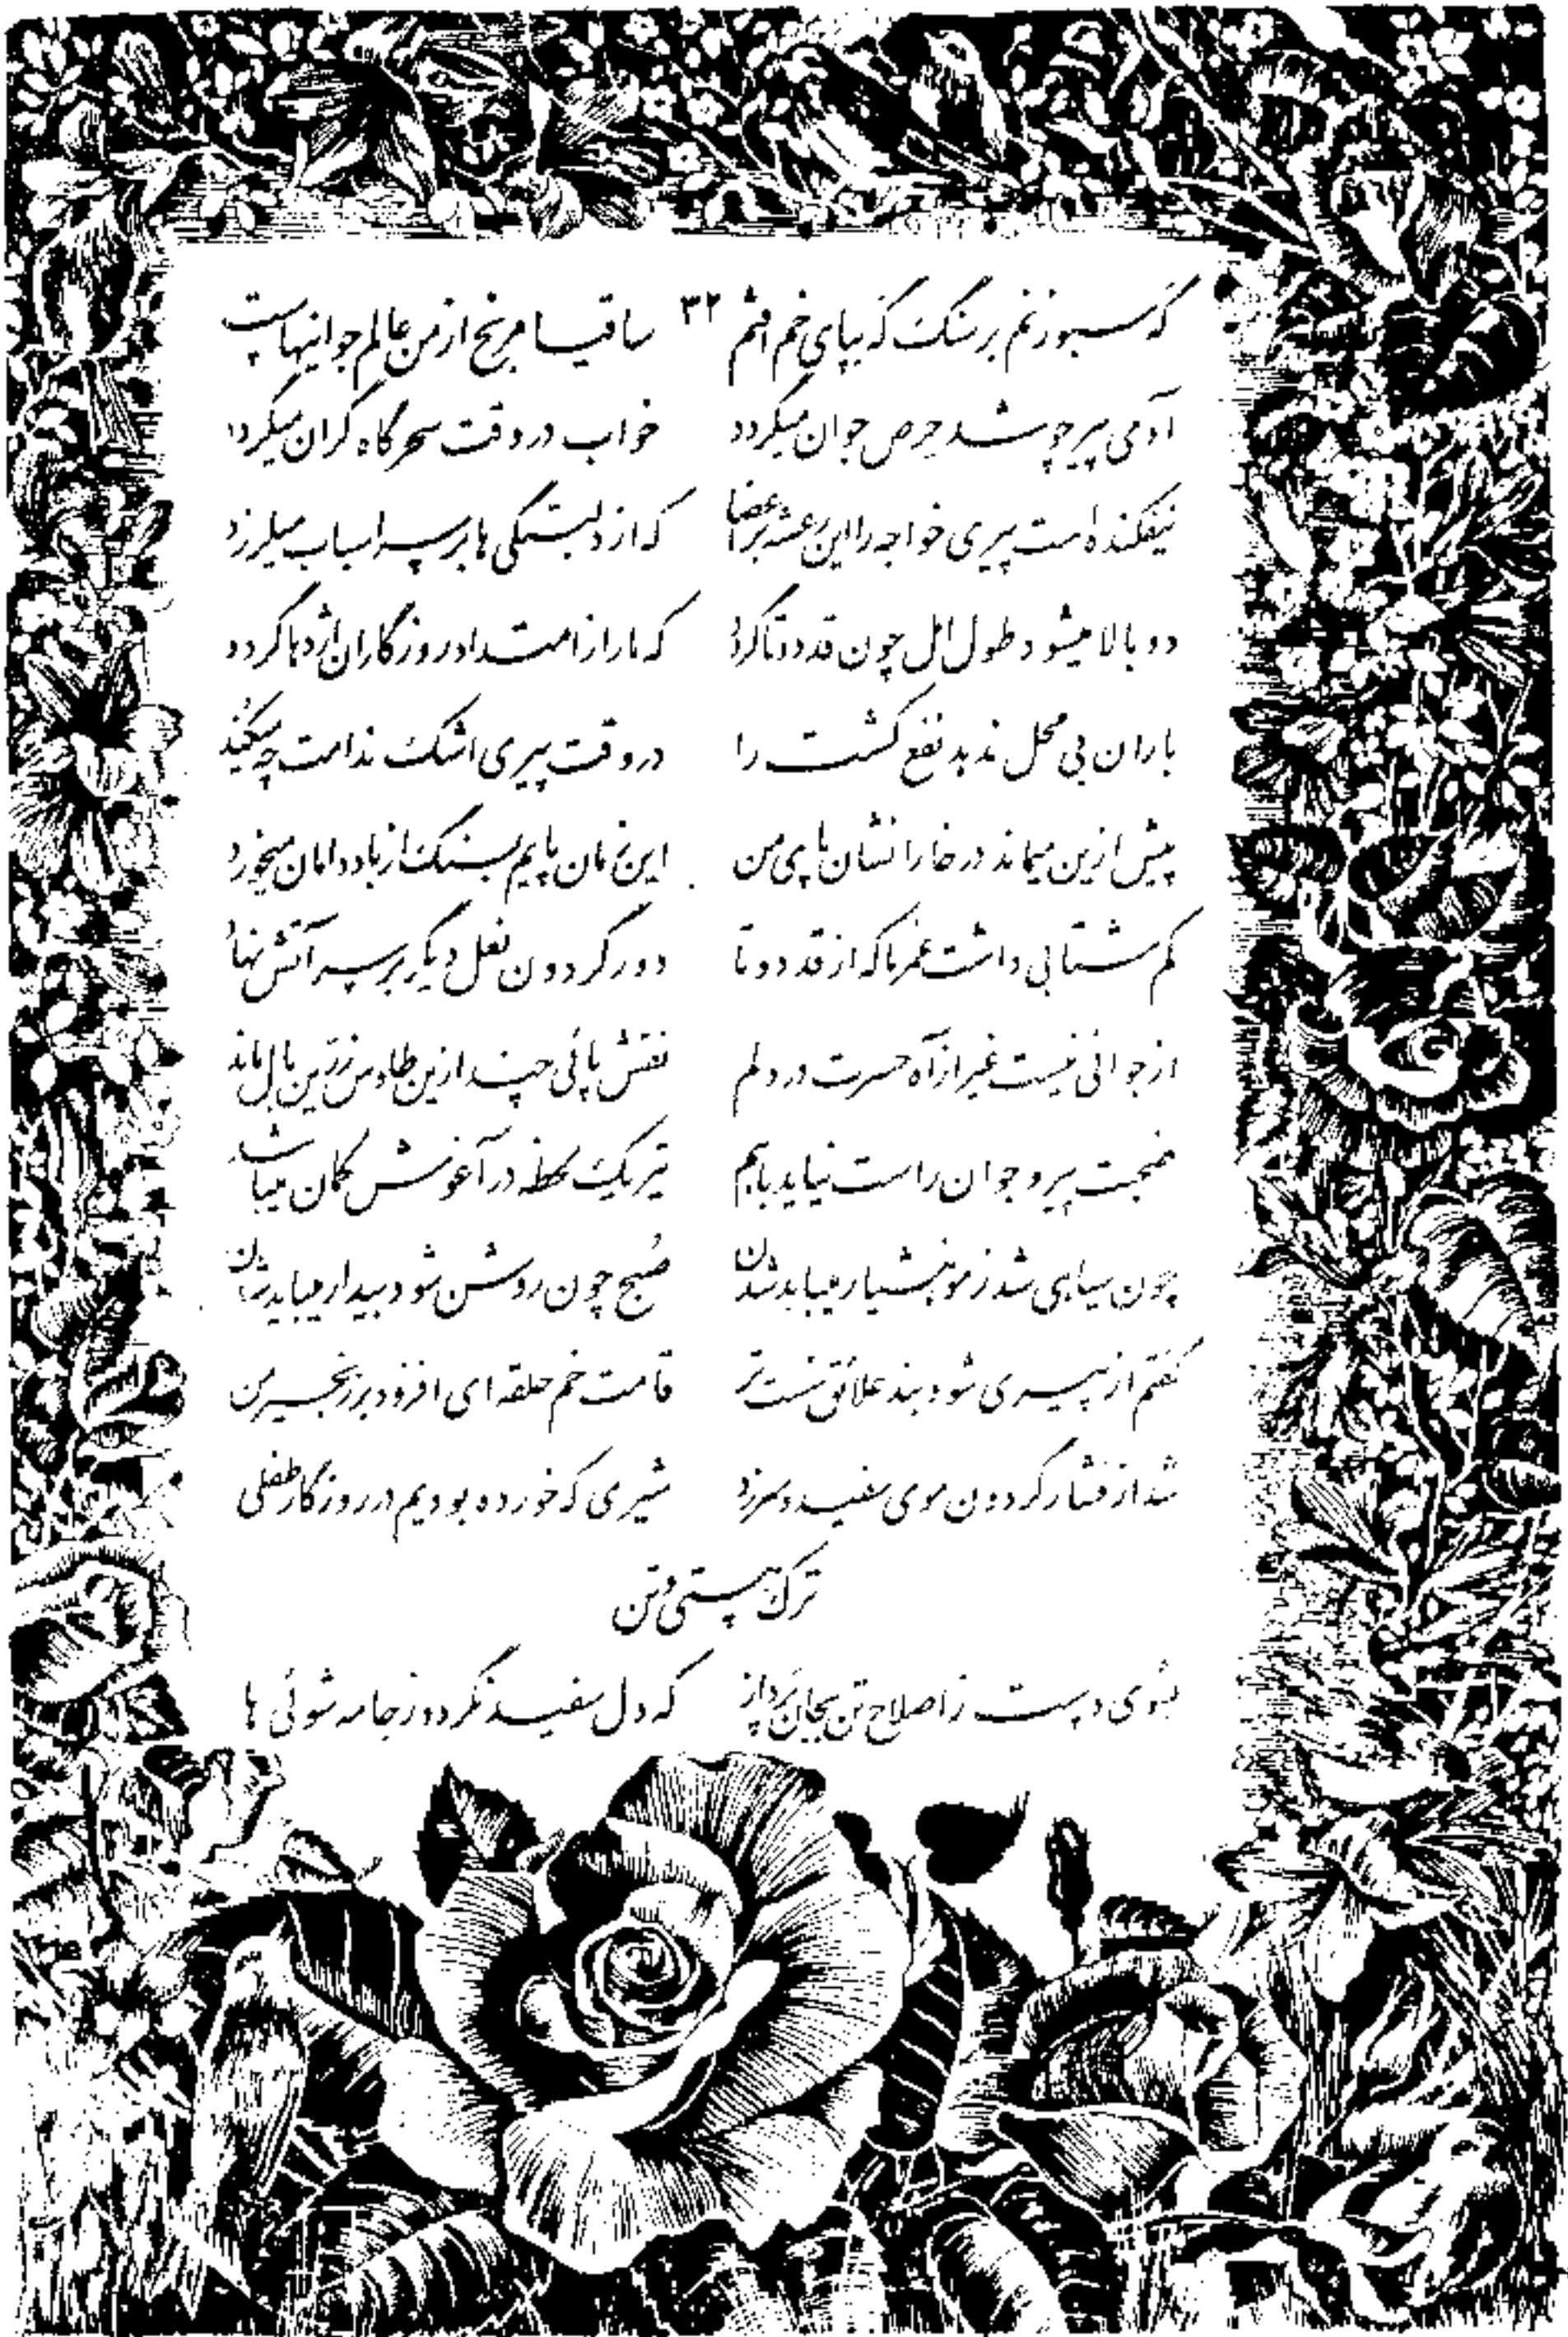 که سبو زنم بر سنگ که بپای خم افتم ۳۲ ساقیا مرنج از من عالم جوانیهاست
آدمی پیر چو شد حرص جوان میگردد خواب در وقت سحرگاه گران میگردد
نیفکنده است پیری خواجه را این رعشه بر اعضا که از دلبستگی ها بر سر اسباب میلرزد
دو بالا میشود طول امل چون قد دو تا گردد که مار از امتداد روزگاران اژدها گردد
باران بی محل ندهد نفع کشت را در وقت پیری اشک ندامت چه میکند
پیش ازین میماند در خارا نشان پای من این زمان پایم بسنگ از باد دامان میخورد
کم شتابی داشت عمر ما که از قد دو تا دور گردون نعل دیگر بر سر آتش نهاد
از جوانی نیست غیر از آه حسرت در دلم نقش پائی چند ازین طاوس زرین بال ماند
صحبت پیر و جوان راست نیاید باهم تیر یک لحظه در آغوش کمان میباشد
چون سیاهی شد ز مو هشیار میباید شدن صبح چون روشن شود بیدار میباید شدن
گفتم از پیری شود بند علائق سست تر قامت خم حلقه ای افزود بر زنجیر من
شد از فشار گردون موی سفید و سر زد شیری که خورده بودیم در روزگار طفلی
ترک هستی و تن
بشوی دست ز اصلاح تن بجان پرداز که دل سفید نگردد ز جامه شوئی ها